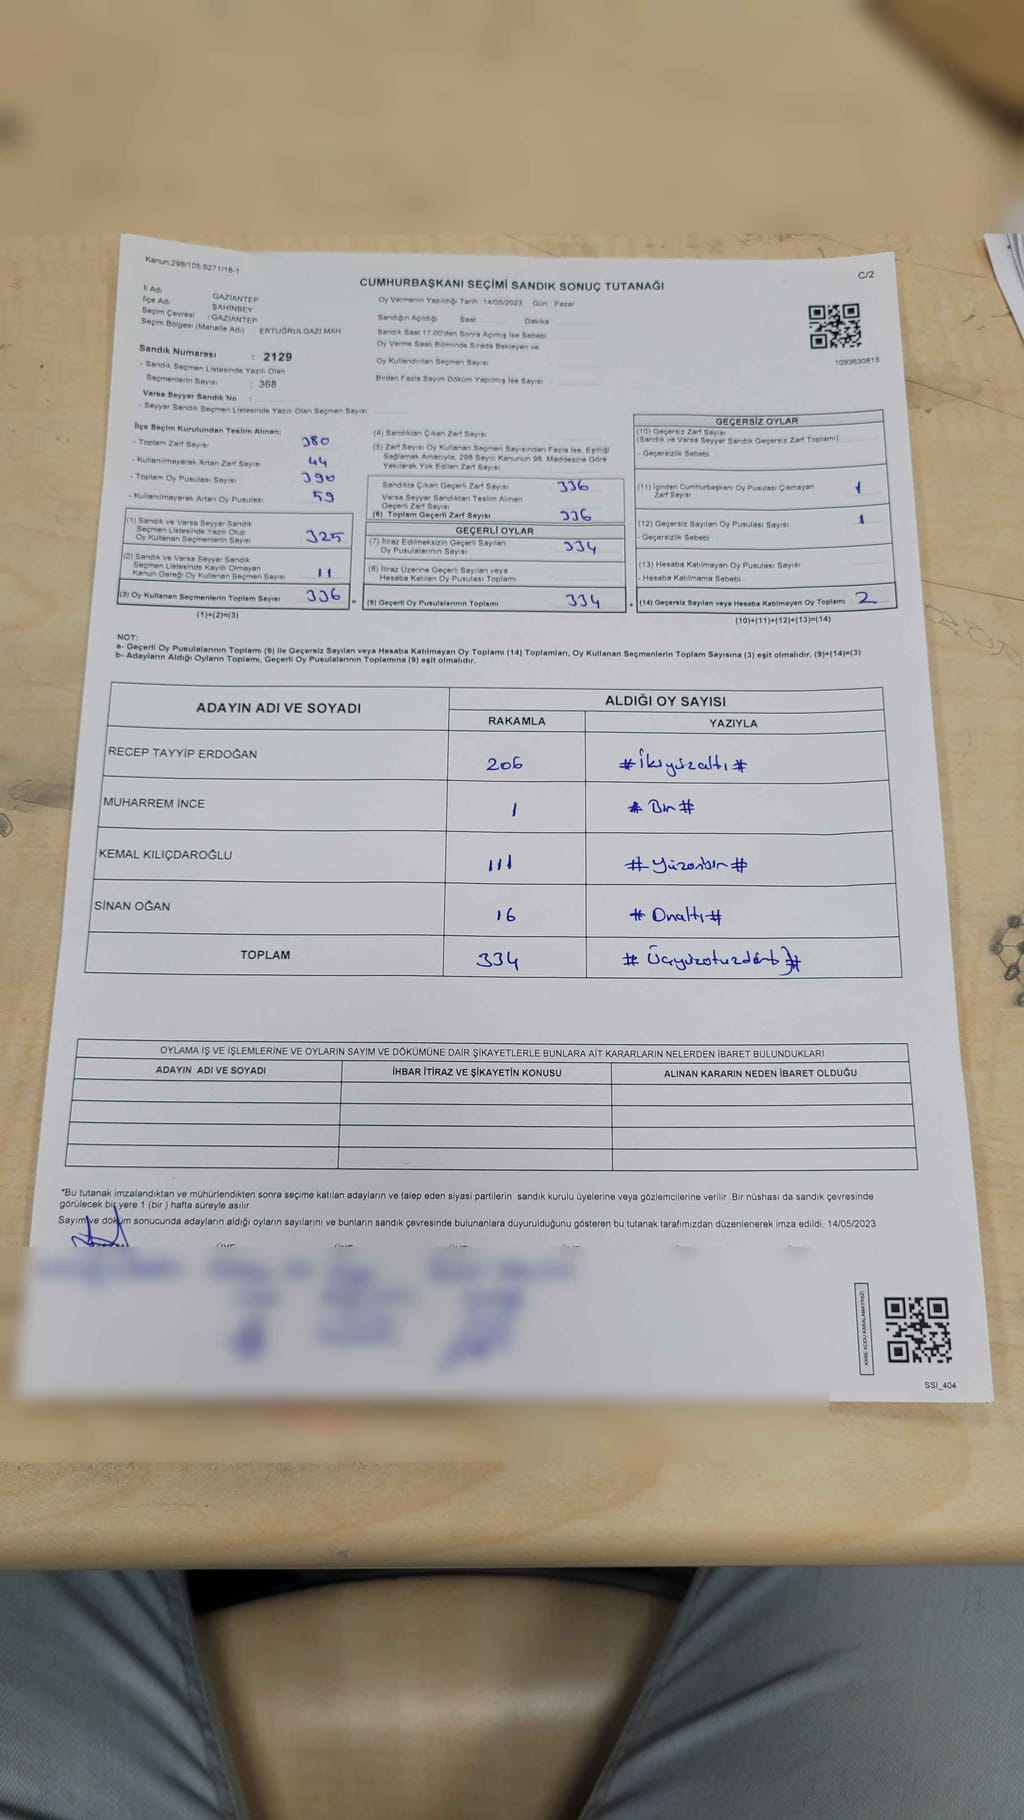 Kanun:298/105,6271/16-1
C/2
CUMHURBAŞKANI SEÇİMİ SANDIK SONUÇ TUTANAĞI
İl Adı : GAZİANTEP
İlçe Adı : ŞAHİNBEY
Seçim Çevresi : GAZİANTEP
Seçim Bölgesi (Mahalle Adı) : ERTUĞRULGAZİ MAH.
Oy Vermenin Yapıldığı Tarih :14/05/2023 Gün : Pazar
Sandığın Açıldığı Saat Dakika
Sandık Saat 17.00'den Sonra Açılmış İse Sebebi
Oy Verme Saati Bitiminde Sırada Bekleyen ve
Oy Kullandırılan Seçmen Sayısı
Birden Fazla Sayım Döküm Yapılmış İse Sayısı
1093630815
Sandık Numarası : 2129
- Sandık Seçmen Listesinde Yazılı Olan
Seçmenlerin Sayısı : 368
Varsa Seyyar Sandık No :
- Seyyar Sandık Seçmen Listesinde Yazılı Olan Seçmen Sayısı
İlçe Seçim Kurulundan Teslim Alınan;
- Toplam Zarf Sayısı 380
- Kullanılmayarak Artan Zarf Sayısı 44
- Toplam Oy Pusulası Sayısı 390
- Kullanılmayarak Artan Oy Pusulası 59
(1) Sandık ve Varsa Seyyar Sandık
Seçmen Listesinde Yazılı Olup
Oy Kullanan Seçmenlerin Sayısı 325
(2) Sandık ve Varsa Seyyar Sandık
Seçmen Listesinde Kayıtlı Olmayan
Kanun Gereği Oy Kullanan Seçmen Sayısı 11
(3) Oy Kullanan Seçmenlerin Toplam Sayısı 336
(1)+(2)=(3)
(4) Sandıktan Çıkan Zarf Sayısı
(5) Zarf Sayısı Oy Kullanan Seçmen Sayısından Fazla İse, Eşitliği
Sağlamak Amacıyla, 298 Sayılı Kanunun 98. Maddesine Göre
Yakılarak Yok Edilen Zarf Sayısı
Sandıkta Çıkan Geçerli Zarf Sayısı 336
Varsa Seyyar Sandıktan Teslim Alınan
Geçerli Zarf Sayısı
(6) Toplam Geçerli Zarf Sayısı 336
GEÇERLİ OYLAR
(7) İtiraz Edilmeksizin Geçerli Sayılan
Oy Pusulalarının Sayısı 334
(8) İtiraz Üzerine Geçerli Sayılan veya
Hesaba Katılan Oy Pusulası Toplamı
= (9) Geçerli Oy Pusulalarının Toplamı 334
GEÇERSİZ OYLAR
(10) Geçersiz Zarf Sayısı
(Sandık ve Varsa Seyyar Sandık Geçersiz Zarf Toplamı)
- Geçersizlik Sebebi
(11) İçinden Cumhurbaşkanı Oy Pusulası Çıkmayan
Zarf Sayısı 1
(12) Geçersiz Sayılan Oy Pusulası Sayısı 1
- Geçersizlik Sebebi
(13) Hesaba Katılmayan Oy Pusulası Sayısı
- Hesaba Katılmama Sebebi
+ (14) Geçersiz Sayılan veya Hesaba Katılmayan Oy Toplamı : 2
(10)+(11)+(12)+(13)=(14)
NOT:
a- Geçerli Oy Pusulalarının Toplamı (9) ile Geçersiz Sayılan veya Hesaba Katılmayan Oy Toplamı (14) Toplamları, Oy Kullanan Seçmenlerin Toplam Sayısına (3) eşit olmalıdır. (9)+(14)=(3)
b- Adayların Aldığı Oyların Toplamı, Geçerli Oy Pusulalarının Toplamına (9) eşit olmalıdır.
ADAYIN ADI VE SOYADI
ALDIĞI OY SAYISI
RAKAMLA YAZIYLA
RECEP TAYYİP ERDOĞAN 206 #İkiyüzaltı#
MUHARREM İNCE 1 # Bir #
KEMAL KILIÇDAROĞLU 111 #Yüzonbir#
SİNAN OĞAN 16 # Onaltı #
TOPLAM 334 # Üçyüzotuzdört #
OYLAMA İŞ VE İŞLEMLERİNE VE OYLARIN SAYIM VE DÖKÜMÜNE DAİR ŞİKAYETLERLE BUNLARA AİT KARARLARIN NELERDEN İBARET BULUNDUKLARI
ADAYIN ADI VE SOYADI İHBAR İTİRAZ VE ŞİKAYETİN KONUSU ALINAN KARARIN NEDEN İBARET OLDUĞU
*Bu tutanak imzalandıktan ve mühürlendikten sonra seçime katılan adayların ve talep eden siyasi partilerin sandık kurulu üyelerine veya gözlemcilerine verilir .Bir nüshası da sandık çevresinde
görülecek bir yere 1 (bir ) hafta süreyle asılır.
Sayım ve döküm sonucunda adayların aldığı oyların sayılarını ve bunların sandık çevresinde bulunanlara duyurulduğunu gösteren bu tutanak tarafımızdan düzenlenerek imza edildi. 14/05/2023
KARE KODU KARALAMAYINIZ!
SSI_404